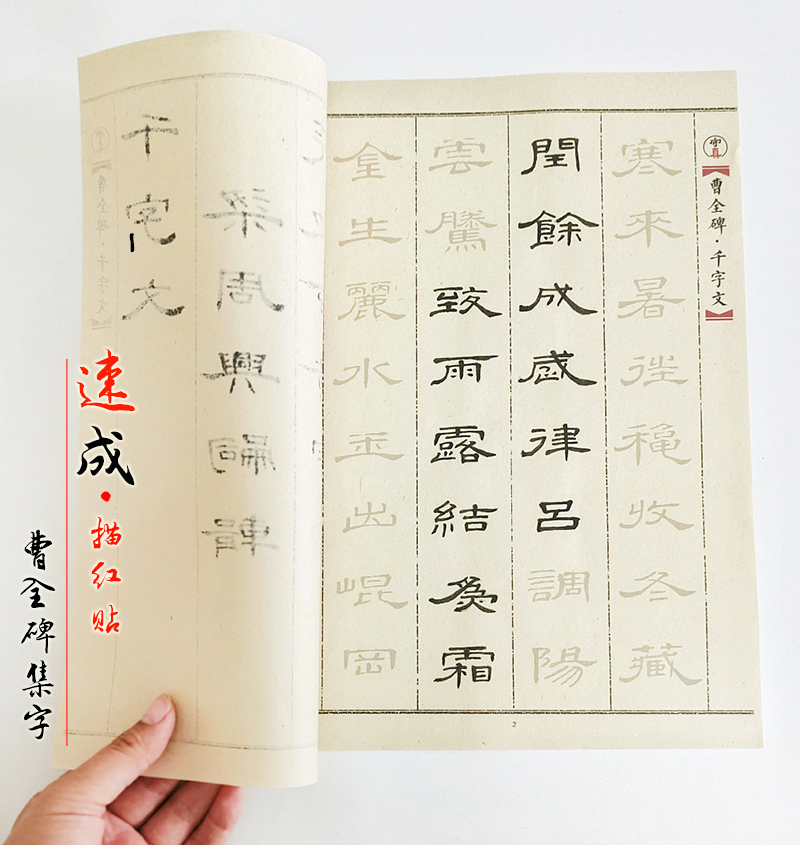 【曹全碑·千字文】
寒來暑徃穐收冬藏
閏餘成歲律呂調陽
雲騰致雨露結爲霜
金生麗水玉出崐岡
2
梁周興嗣輯
千字文
速成·描红贴
曹全碑集字